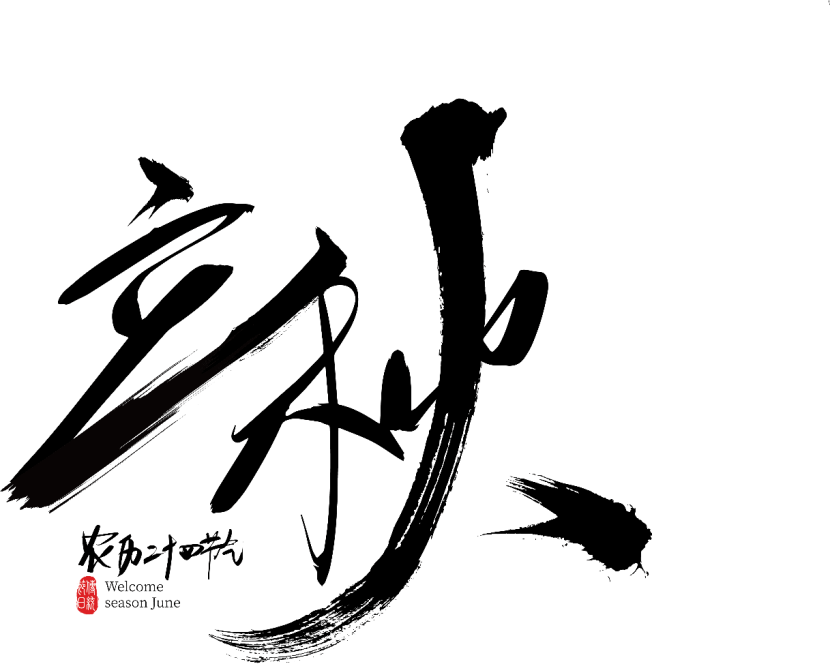 立秋
农历二十四节气
传统
节日
Welcome
season June